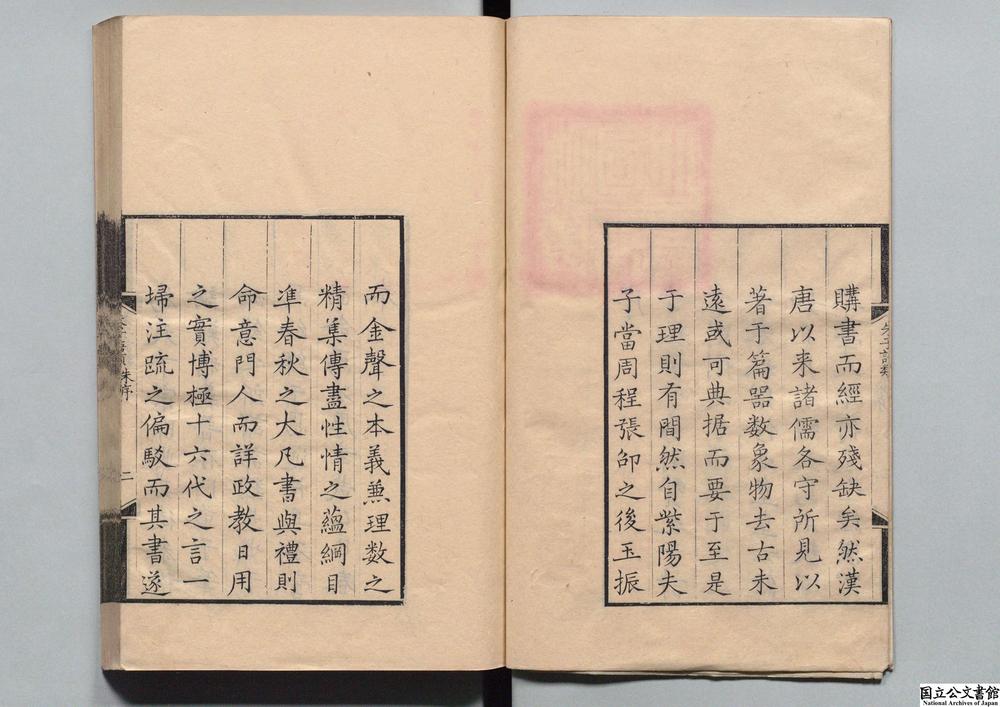 購書而經亦殘缺矣然漢
唐以来諸儒各守所見以
著于篇噐数象物去古未
遠或可典据而要于至是
于理則有間然自紫陽夫
子當周程張邵之後玉振
而金聲之本義兼理数之
精集傳盡性情之蘊綱目
凖春秋之大凡書與禮則
命意門人而詳政教日用
之實博極十六代之言一
埽注疏之偏駁而其書遂
朱序
二
国立公文書館
National Archives of Japan